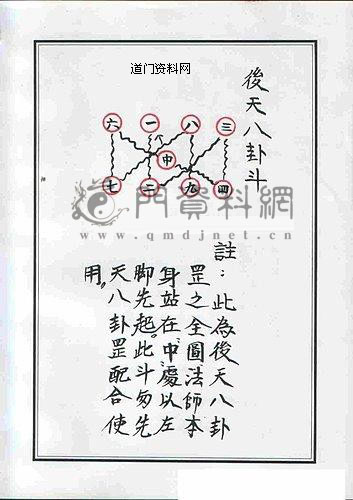 道门资料网
後天八卦斗
六 一 八 三
中
七 二 九 四
門資料網
www.qmdjnet.com
註：此為後天八卦
罡之全圖法師本
身站在〝中〞處以左
脚先起。此斗勿先
天八卦罡配合使
用。